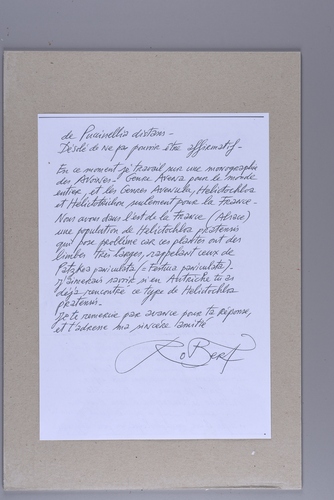 de Puccinellia distans -
Désolé de ne pas pouvoir être affirmatif -
En ce moment je travail sur une monographie
des Avoines - Genre Avena pour le monde
entier, et les Genres Avenula, Helictochloa
et Helictotrichon seulement pour la France -
Nous avons dans l'est de la France (Alsace)
une population de Helictochloa pratensis
qui pose problème car ces plantes ont des
limbes très larges, rappelant ceux de
Patzkea paniculata (= Festuca paniculata) -
J'aimerais savoir si en Autriche tu as
déjà rencontré ce type de Helictochloa
pratensis -
Je te remercie par avance pour ta réponse,
et t'adresse ma sincère amitié
RoBert